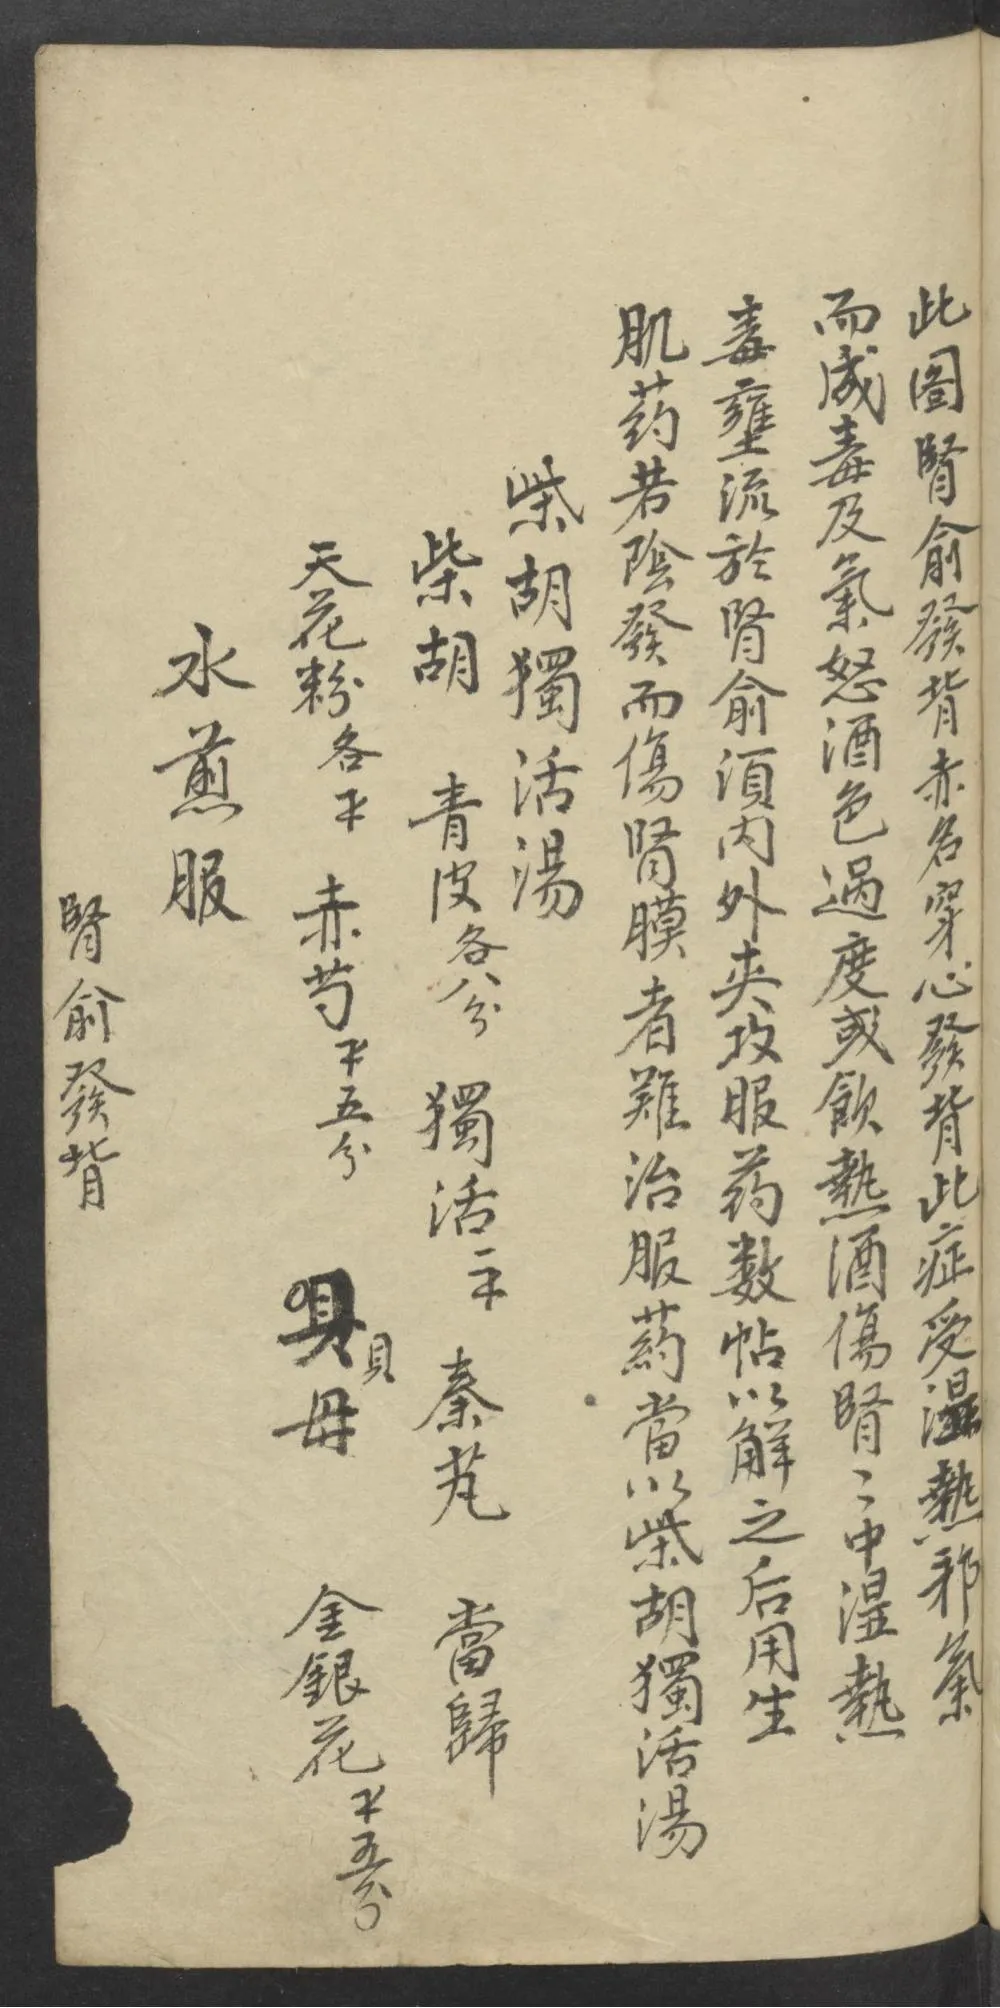 此圖腎俞發背赤名穿心發背此症受濕熱邪氣
而成毒及氣怒酒色過度或飲熱酒傷腎〻中湿熱
毒壅流於腎俞須内外夾攻服药数帖以解之后用生
肌药若陰發而傷腎膜者難治服葯當以柴胡獨活湯
柴胡獨活湯
柴胡 青皮各八分 獨活二不 秦艽 當歸
天花粉各不 赤芍不五分 貝母 金銀花不五分
水煎服
腎俞發背